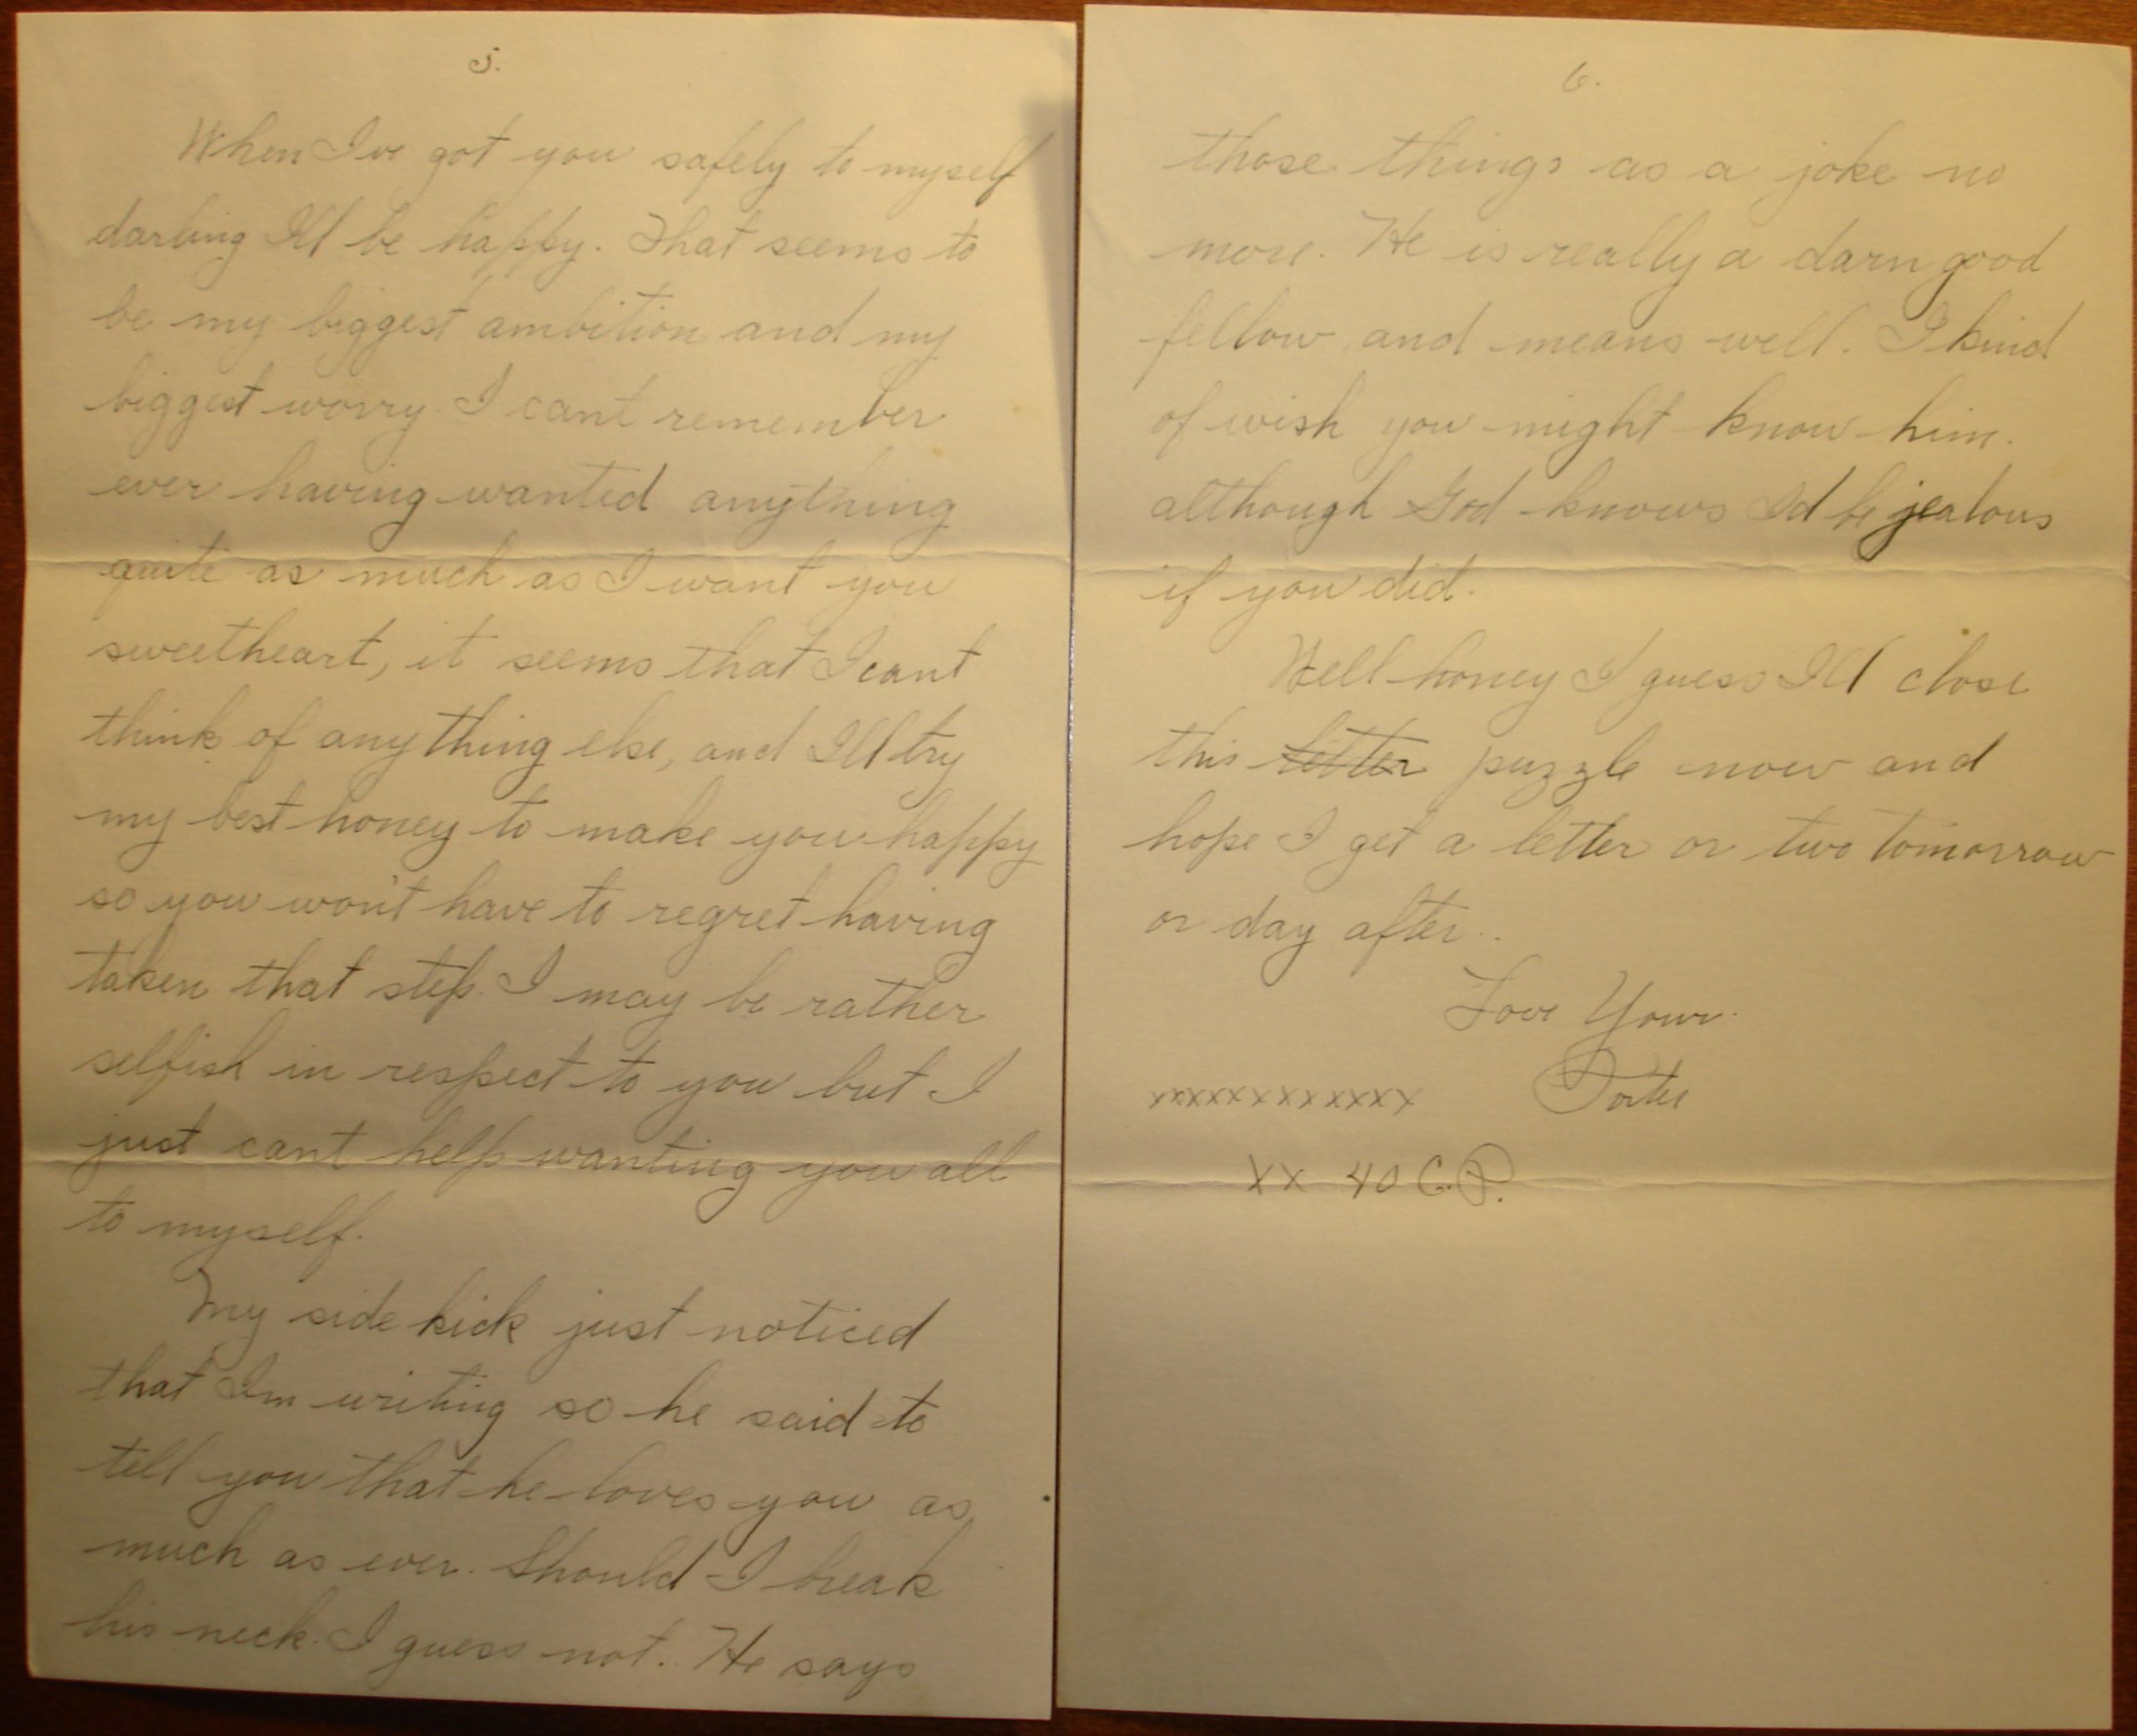 5.
When Ive got you safely to myself
darling Ill be happy. That seems to
be my biggest ambition and my
biggest worry. I cant remember
ever having wanted anything
quite as much as I want you
sweetheart, it seems that I cant
think of any thing else, and Ill try
my best honey to make you happy
so you won't have to regret having
taken that step. I may be rather
selfish in respect to you but I
just cant help wanting you all
to myself.
My side kick just noticed
that Im writing so he said to
tell you that he loves you as
much as ever. Should I break
his neck. I guess not. He says
6.
those things as a joke no
more. He is really a darn good
fellow and means well. I kind
of wish you might know him.
although God knows Id be jealous
if you did.
Well honey I guess Ill close
this letter puzzle now and
hope I get a letter or two tomorrow
or day after..
Love Your
xxxxxxxxxxxxx
xx 40 C.P.